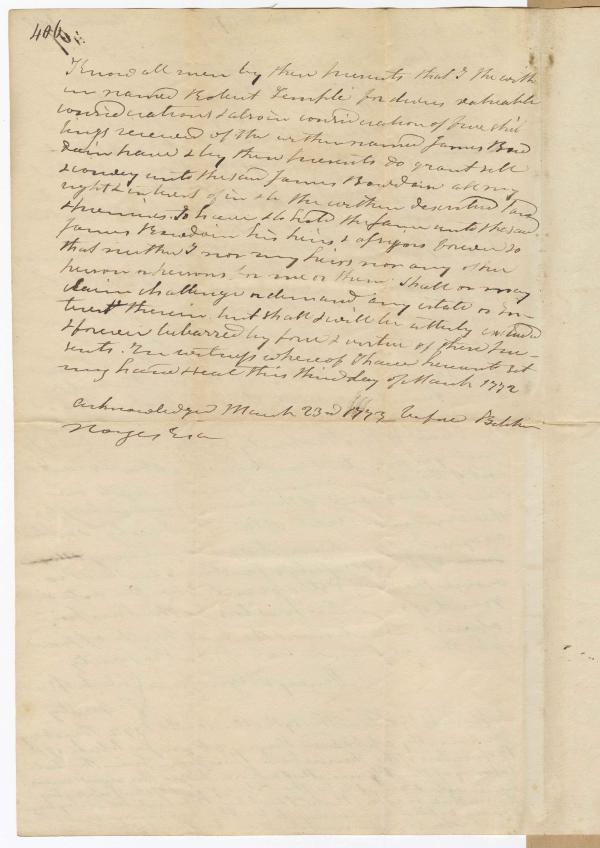 406
Know all men by these presents that I the with
in named Robert Temple for divers valuable
considerations & also in consideration of five shil
lings received of the within named James Bow
doin have & by these presents do grant sell
& convey unto the said James Bowdoin all my
right & interest of in & to the within described land
& premises. To have & to hold the same unto the said
James Bowdoin his heirs & assigns forever so
that neither I nor my heirs nor any other
person or persons for me or them shall or may
claim challenge or demand any estate or In-
terest therein but shall & will be utterly excluded
& forever debarred by force & virtue of these Pre-
sents. In witness whereof I have hereunto set
my hand & seal this third day of March 1772
acknowledged March 23d 1773 before Belcher
Noyes Esqr